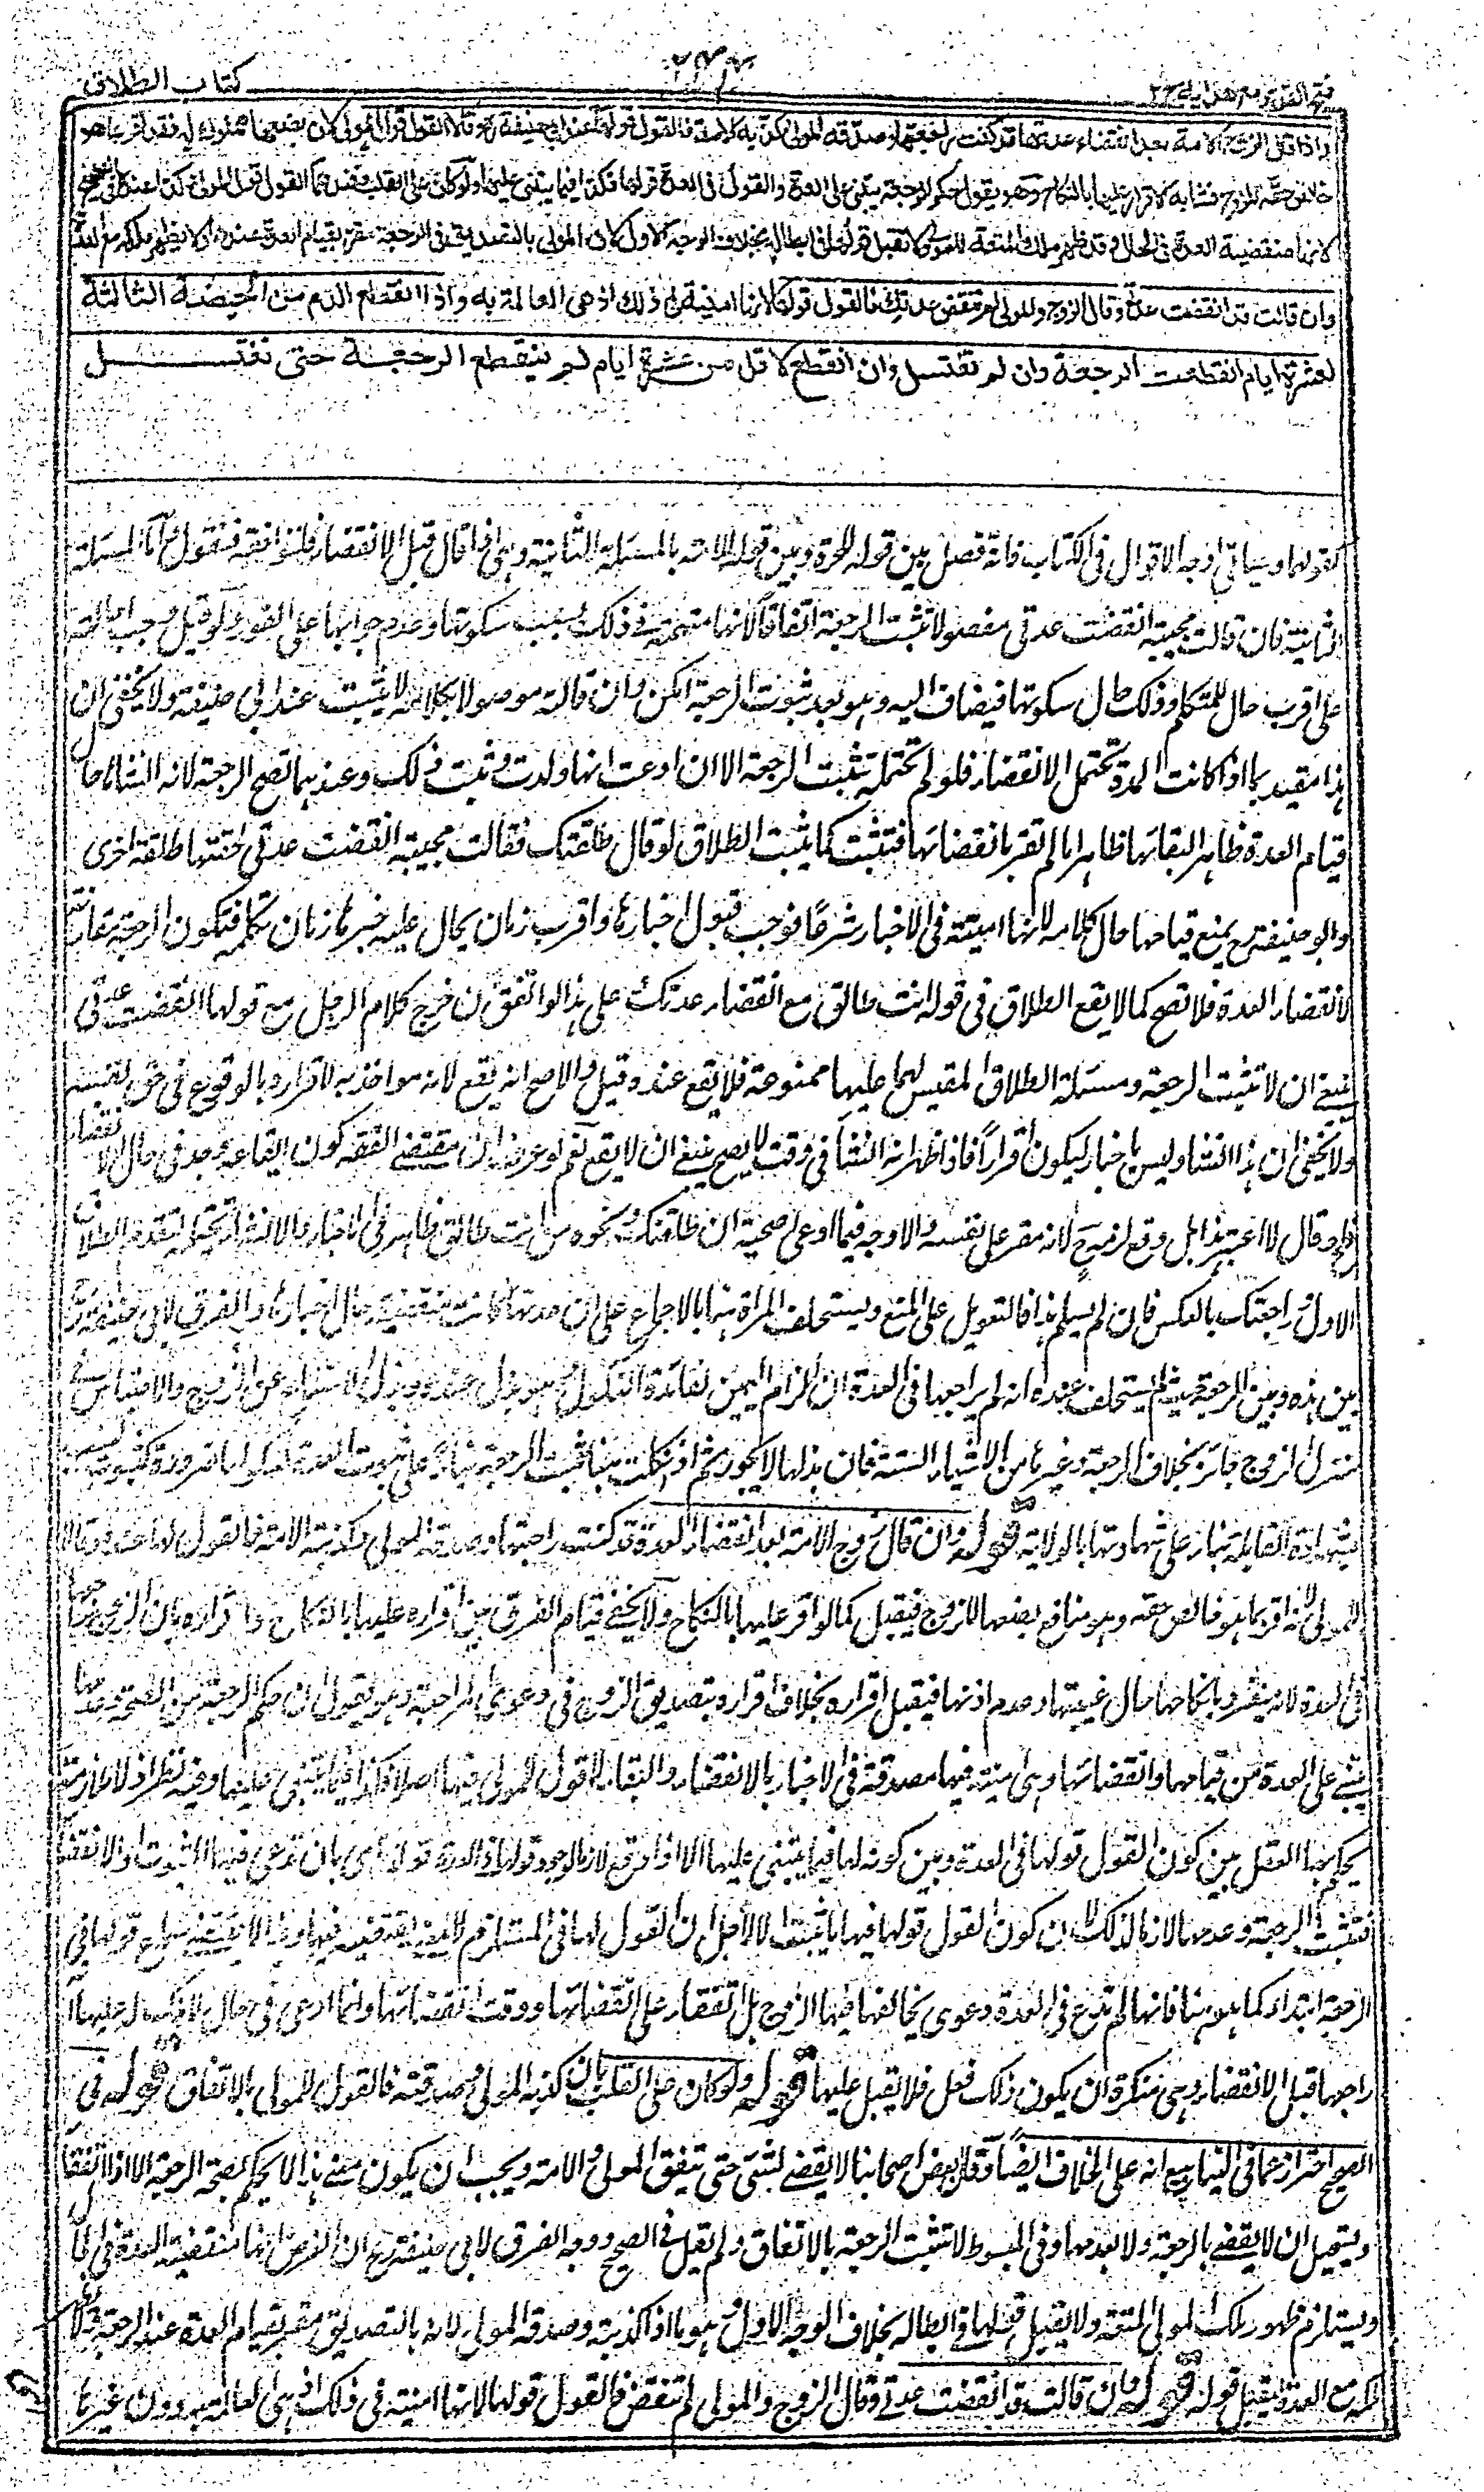 فتح القدير مع هدايه ج ٢
كتاب الطلاق
واذا قال زوج الامة بعد انقضاء عدتها قد كنت راجعتها وصدقه المولى وكذبته الامة فالقول قولها عند ابي حنيفة رح وقالا القول قول المولى لان بضعها مملوك له فقد اقر بما هو
خالص حقه للزوج فشابه الاقرار عليها بالنكاح وهو يقول حكم الرجعة يبتنى على العدة والقول في العدة قولها فكذا فيما يبتنى عليها ولو كان على القلب فعندهما القول قول المولى وكذا عنده في الصحيح
لانها منقضية العدة في الحال وقد ظهر ملك المتعة للمولى ولا تقبل قولها في ابطاله بخلاف الوجه الاول لان المولى بالتصديق في الرجعة مقر بقيام العدة عندها ولا يظهر ملكه مع العدة
وان قالت قد انقضت عدتي وقال الزوج والمولى لم تنقض عدتك فالقول قولها لانها امينة في ذلك اذ هي العالمة به واذا انقطع الدم من الحيضة الثالثة
لعشرة ايام انقطعت الرجعة وان لم تغتسل وان انقطع لاقل من عشرة ايام لم ينقطع الرجعة حتى تغتسل
كقولهما وسياتي اوجه الاقوال في الكتاب فانه فصل بين قوله للحرة وبين قوله للامة بالمسئلة الثانية وهي اذا قال قبل الانقضاء فلنوافقه فنقول اما المسئلة
الثانية فان قالت مجيبة انقضت عدتي مفصولا تثبت الرجعة اتفاقا لانها متهمة في ذلك بسبب سكوتها وعدم جوابها على الفور ولو قيل وجب احالته
على اقرب حال للمتكلم وذلك حال سكوتها فيضاف اليه وهو بعد ثبوت الرجعة امكن وان قالته موصولا بكلامه لا يثبت عند ابي حنيفة ولا يخفى ان
هذا مقيد بما اذا كانت المدة تحتمل الانقضاء فلو لم تحتمله تثبت الرجعة الا ان ادعت انها ولدت وثبت ذلك وعندهما تصح الرجعة لانه انشأها حال
قيام العدة ظاهرا لبقائها ظاهرا ما لم تقر بانقضائها فتثبت كما يثبت الطلاق لو قال طلقتك فقالت مجيبة انقضت عدتي لحقتها طلقة اخرى
وابو حنيفة رح يمنع قيامها حال كلامه لانها امينة في الاخبار شرعا فوجب قبول اخبارها واقرب زمان يحال عليه خبرها زمان تكلمه فتكون الرجعة مقارنة
لانقضاء العدة فلا تصح كما لا يقع الطلاق في قوله انت طالق مع انقضاء عدتك على هذا لو اتفق ان خرج كلام الرجل مع قولها انقضت عدتي
ينبغي ان لا تثبت الرجعة ومسئلة الطلاق المقيس لهما عليها ممنوعة فلا يقع عنده وقيل والاصح انه يقع لانه مواخذ به لاقراره بالوقوع في حق نفسه
ولا يخفى ان هذا انشاء وليس باخبار ليكون اقرارا فاذا ظهر انه انشأ في وقت لا يصح ينبغي ان لا يقع نعم لو عرف ان مقتضى الفقه كون ايقاعه وجد في حال الانقضاء
فلم وقال لا اعتبر هذا بل وقع لزمه ح لانه مقر على نفسه والاوجه فيما ادعى صحته ان طلقتك ونحوه من انت طالق ظاهر في الاخبار والانشاء تحتمله لتقدم الطلاق
الاول وراجعتك بالعكس فان لم يسلم هذا فالتعويل على المنع ويستحلف المرأة هنا بالاجماع على ان عدتها كانت منقضية حال اخبارها والفرق لابي حنيفة رح
بين هذه وبين الرجعة حيث لم يستحلف عنده انه لم يراجعها في العدة ان الزام اليمين لفائدة النكول وهو بذل عنده وبذل الامتناع عن الزوج والاحتباس في
منزل الزوج جائز بخلاف الرجعة وغيرها من الاشياء الستة فان بذلها لا يجوز ثم اذا نكلت هنا ثبت الرجعة بناء على ثبوت العدة لنكولها ضرورة كثبوت النسب
بشهادة القابلة بناء على شهادتها بالولادة قوله وان قال زوج الامة بعد انقضاء العدة قد كنت راجعتها وصدقه المولى وكذبته الامة فالقول لها عنده وقالا
للمولى لانه اقر بما هو خالص حقه وهو منافع بضعها للزوج فيقبل كما لو اقر عليها بالنكاح ولا يخفى قيام الفرق بين اقراره عليها بالنكاح واقراره بان الزوج راجعها
في العدة لانه ينفرد بانكاحها حال غيبتها وعدم اذنها فيقبل اقراره بخلاف اقراره بتصديق الزوج في دعوى المراجعة وهو يقول ان حكم الرجعة من الصحة وعدمها
يبتنى على العدة من قيامها وانقضائها وهي امينة فيها مصدقة في الاخبار بالانقضاء والبقاء لا قول للمولى فيها اصلا فكذا فيما يبتنى عليها وفيه نظر اذ لا ملازمة
يحكم بها العقل بين كون القول قولها في العدة وبين كونه لها فيما يبتنى عليها الا اذا وقع لازما لوجود قولها في العدة قولها اي بان تدعي فيها الثبوت او الانقضاء
فتثبت الرجعة وعدمها لازما لذلك لان كون القول قولها فيها يثبت لا لاجل ان القول لها في المستلزم
الرجعة ابتداء كما هو هنا فانها لم تدع في العدة دعوى يخالفها فيها الزوج بل اتفقا على انقضائها ووقت انقضائها وانما ادعى في حال لا يملك عليها
راجعها قبل الانقضاء وهي منكرة ان يكون ذلك فعل فلا يقبل عليها قوله ولو كان على القلب بان كذبه المولى وصدقته فالقول للمولى بالاتفاق قوله في
الصحيح احتراز عما في الينابيع انه على الخلاف ايضا وقال بعض اصحابنا لا يقضى بشيء حتى يتفق المولى والامة ويجب ان يكون معنى هذا لا يحكم بصحة الرجعة الا اذا اتفقا
ويستحيل ان لا يقضى بالرجعة ولا بعدمها وفي المبسوط لا تثبت الرجعة بالاتفاق ولم يقل في الصحيح ووجه الفرق لابي حنيفة رح ان الفرض انها منقضية العدة في الحال
ويستلزم ظهور ملك المولى المتعة ولا يقبل قولها في ابطاله بخلاف الوجه الاول وهو ما اذا كذبته وصدقه المولى لانه بالتصديق مقر بقيام العدة عند الرجعة ولا يظهر
ملكه مع العدة ليقبل قوله قوله وان قالت قد انقضت عدتي وقال الزوج والمولى لم تنقض فالقول قولها لانها امينة في ذلك اذ هي العالمة به دون غيرها